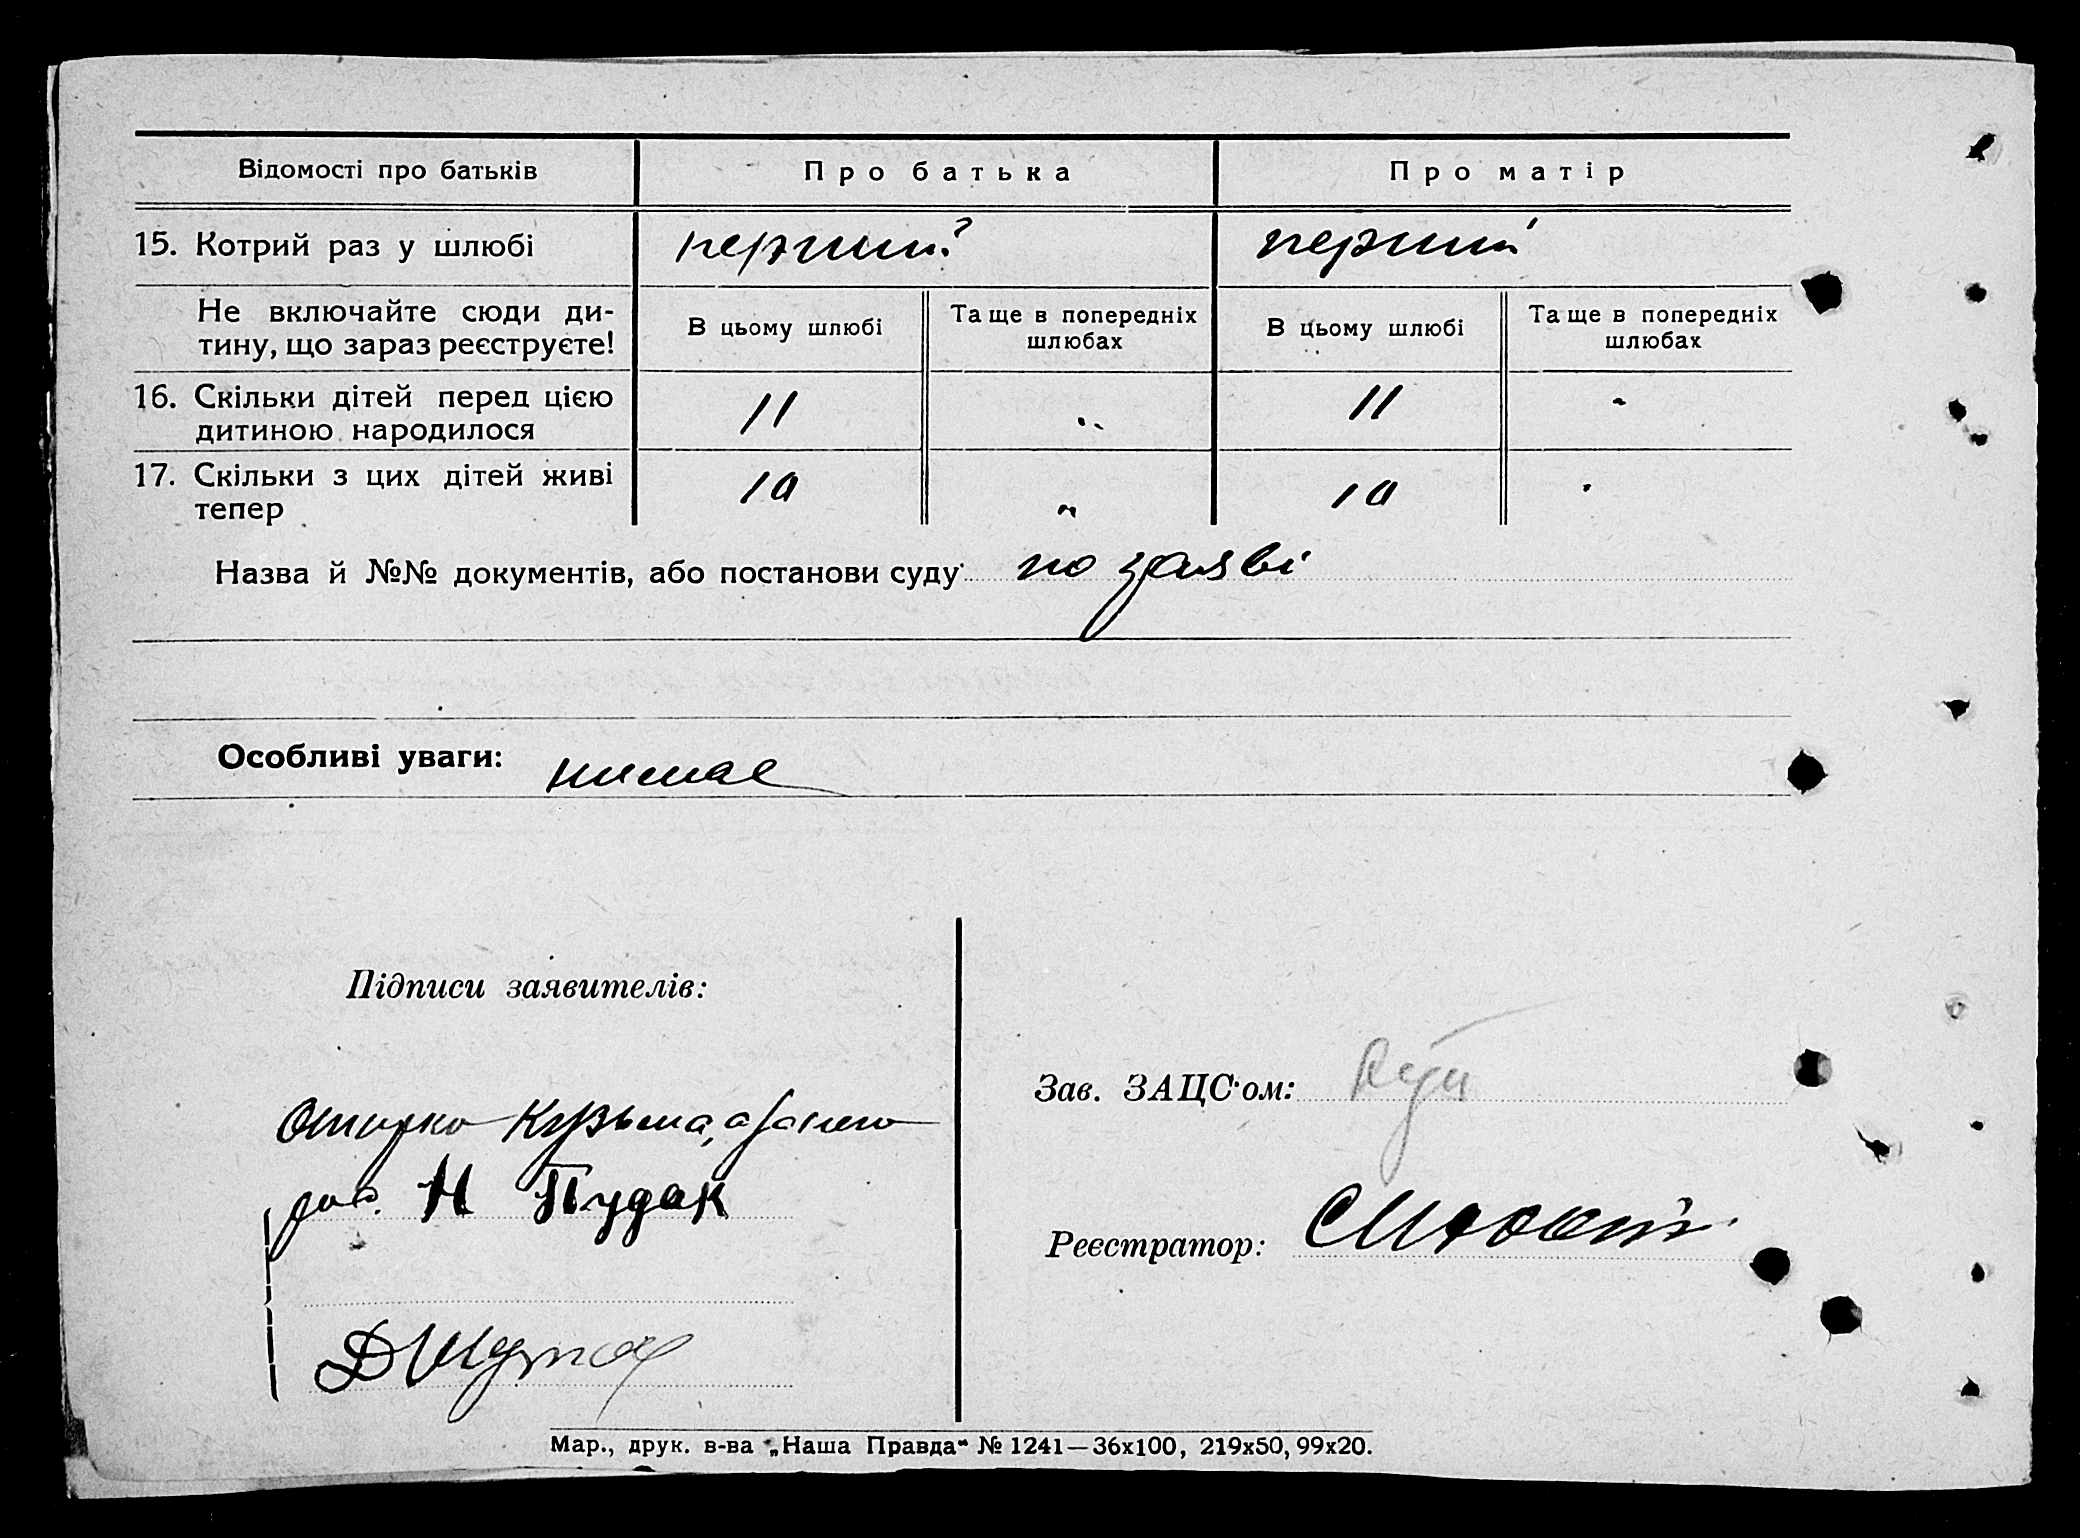 Відомості про батьків Про батька Про матір
15. Котрий раз у шлюбі перший перший
Не включайте сюди ди-
тину, що зараз реєструєте!
В цьому шлюбі
Та ще в попередніх
шлюбах
В цьому шлюбі
Та ще в попередніх
шлюбах
16. Скільки дітей перед цією
дитиною народилося
11 „ 11 "
17. Скільки з цих дітей живі
тепер
10 „ 10
Назва й №№ документів, або постанови суду по заяві
Особливі уваги: нимае
Підписи заявителів:
Кузьма,
Н Пудак
Зав. ЗАЦС'ом:
Реєстратор:
Мар., друк. в-ва „Наша Правда“ № 1241—36х100, 219х50, 99х20.